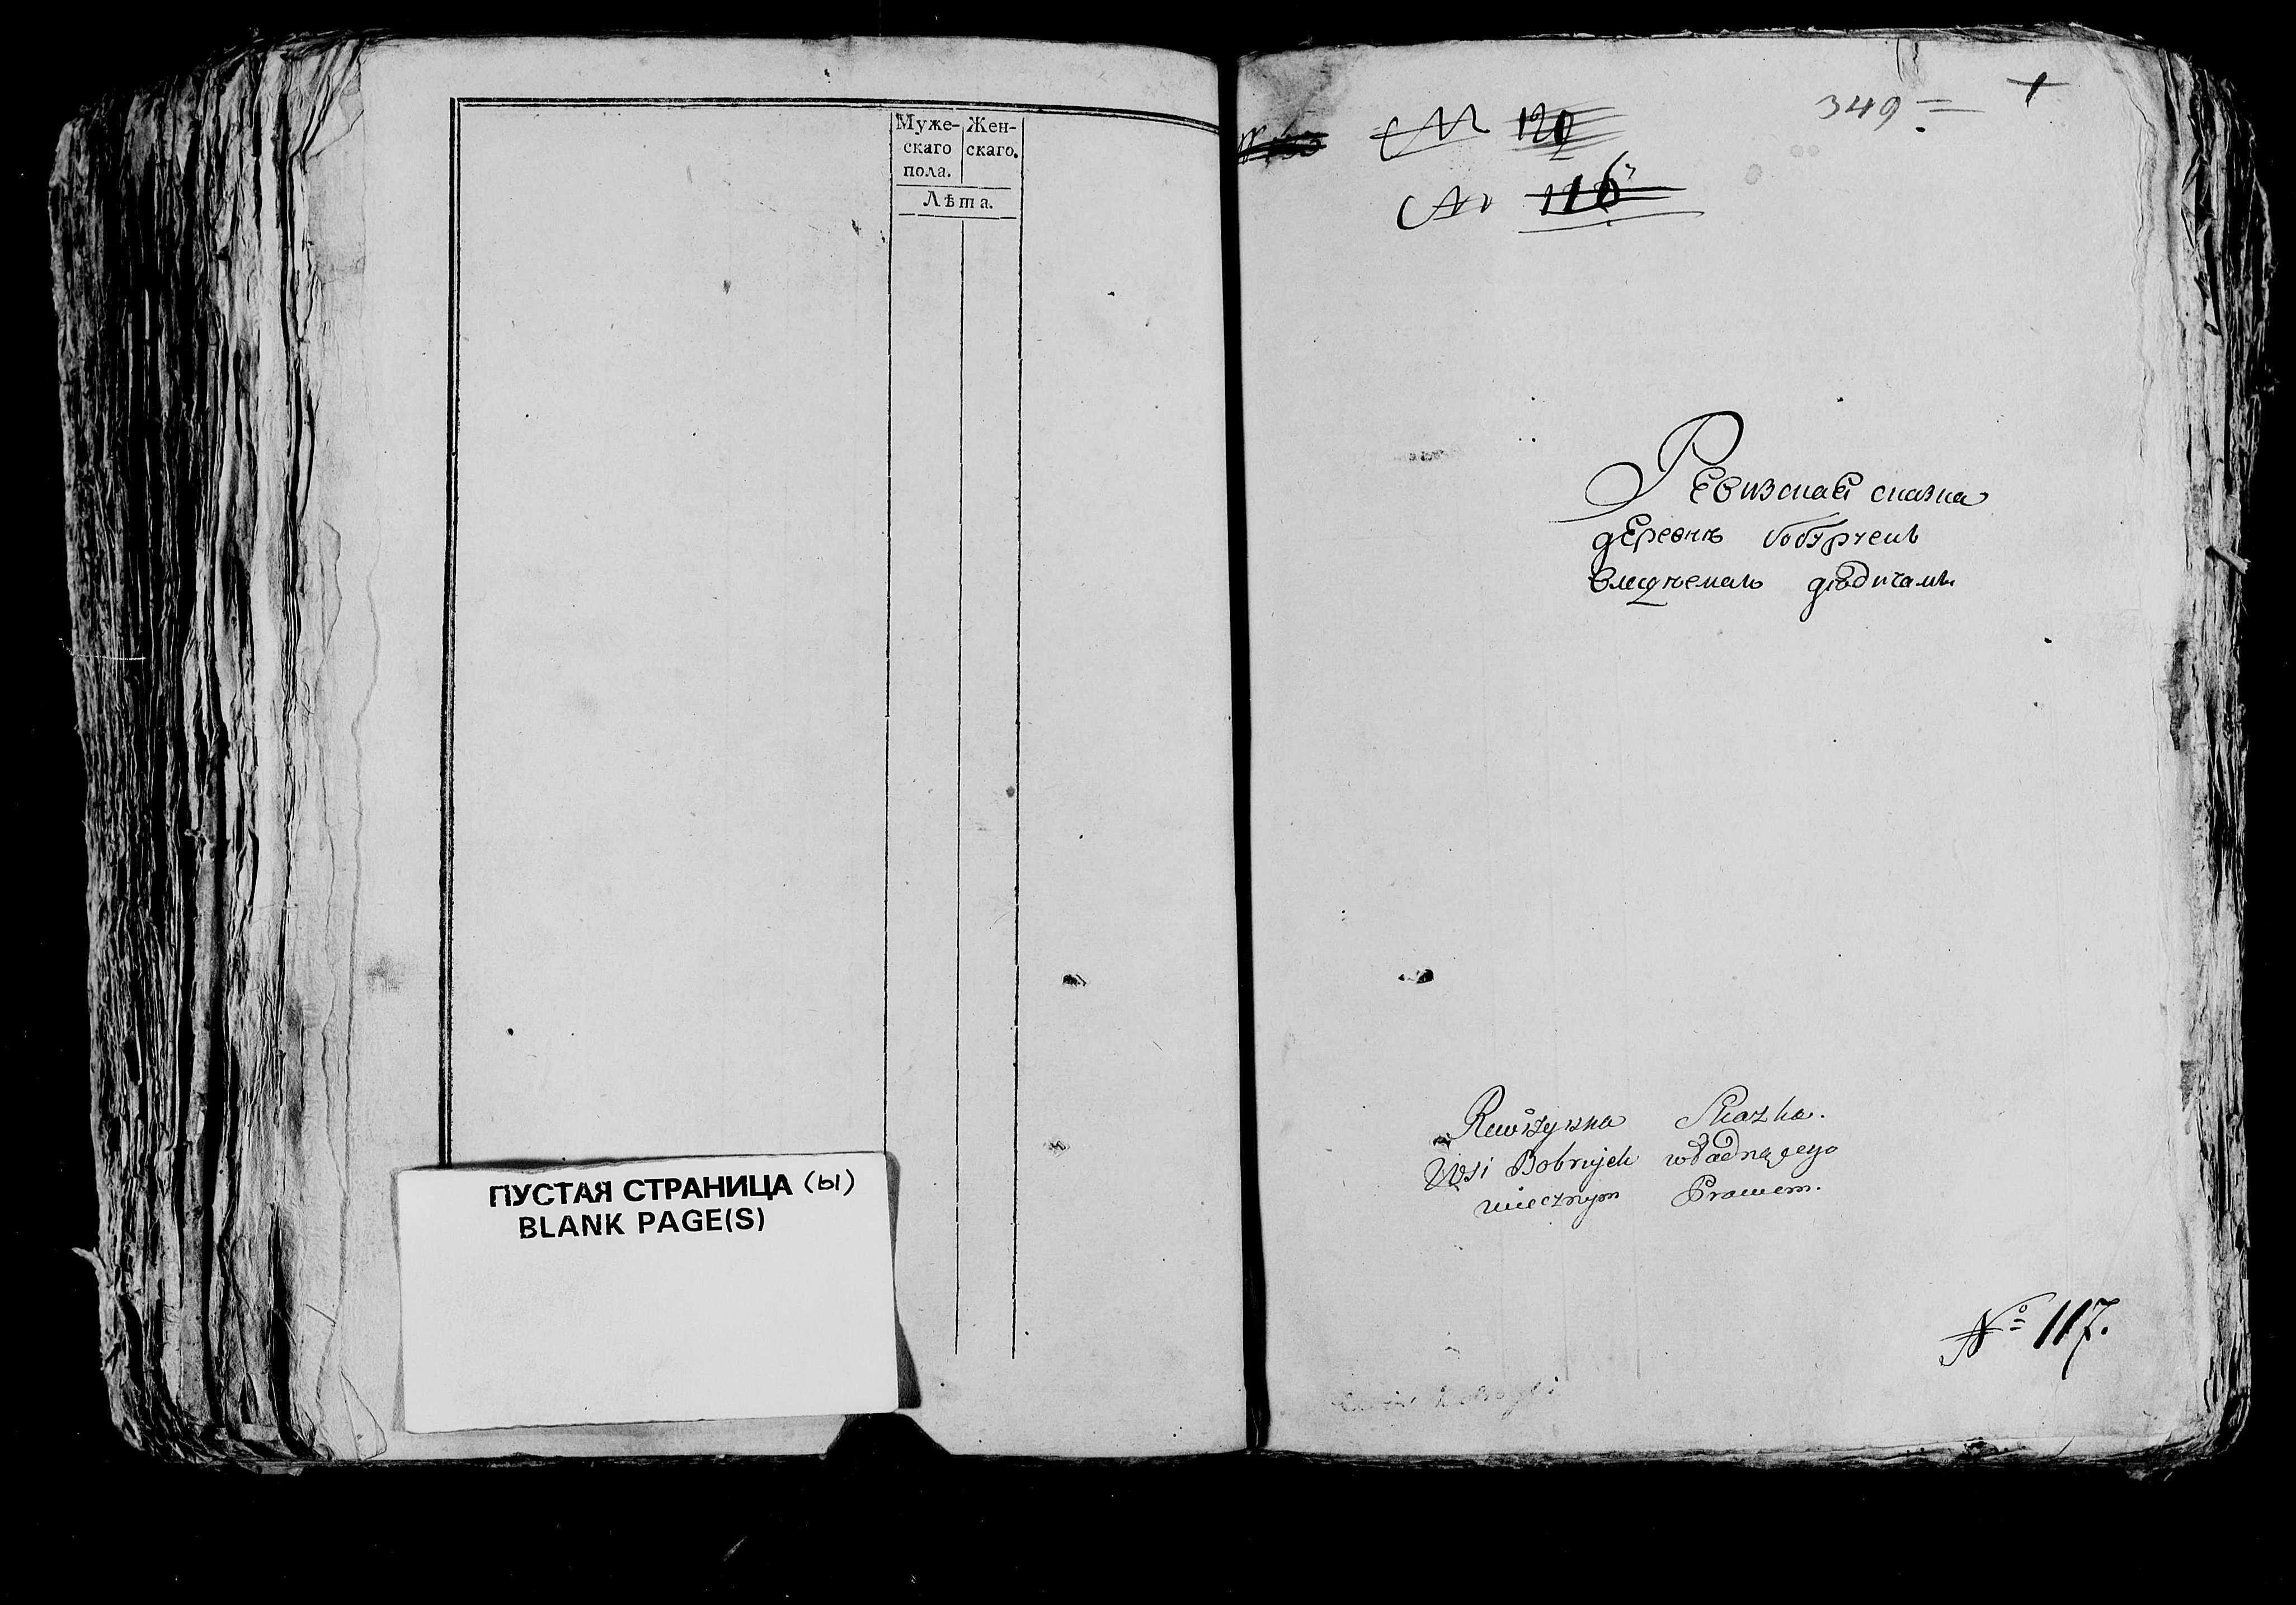 Муже-
скаго
пола.
Жен-
скаго.
Лѣта.
ПУСТАЯ СТРАНИЦА (ы)
BLANK PAGE(S)
349
№ 120
№ 116
Ревизская сказка
деревнѣ
дѣдичамъ
Rewizyzna Skazka.
Wsi Bobrujek władnącego
wiecznym Prawem.
№ 117.